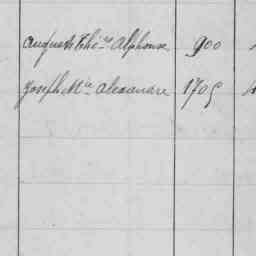 auguste Thé.re Alphonse 900
Joseph M.ie alexandre 1705